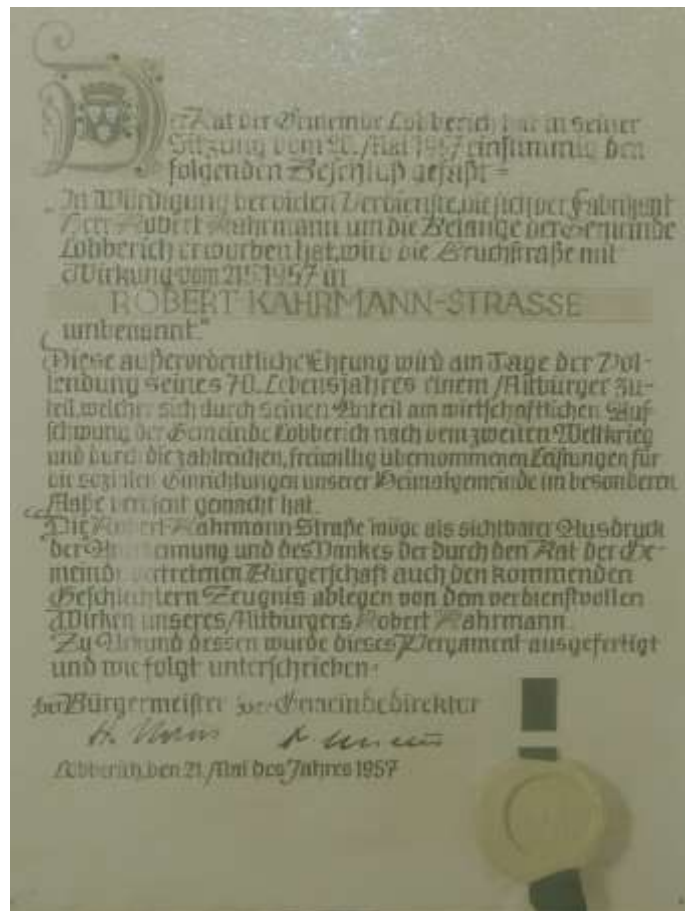 Der Rat der Gemeinde Lobberich hat in seiner
Sitzung vom 20. Mai 1957 einstimmig den
folgenden Beschluß gefaßt =
„In Würdigung der vielen Verdienste, die sich der Fabrikant
Herr Robert Kahrmann um die Belange der Gemeinde
Lobberich erworben hat, wird die Bruchstraße mit
Wirkung vom 21.5.1957 in
ROBERT KAHRMANN-STRASSE
umbenannt.“
Diese außerordentliche Ehrung wird am Tage der Vol-
lendung seines 70. Lebensjahres einem Mitbürger zu-
teil, welcher sich durch seinen Anteil am wirtschaftlichen Auf-
schwung der Gemeinde Lobberich nach dem zweiten Weltkrieg
und durch die zahlreichen, freiwillig übernommenen Leistungen für
die sozialen Einrichtungen unserer Heimatgemeinde im besonderen
Maße verdient gemacht hat.
Die Robert-Kahrmann Straße möge als sichtbarer Ausdruck
der Anerkennung und des Dankes der durch den Rat der Ge-
meinde vertretenen Bürgerschaft auch den kommenden
Geschlechtern Zeugnis ablegen von dem verdienstvollen
Wirken unseres Mitbürgers Robert Kahrmann.
Zu Urkund dessen wurde dieses Pergament ausgefertigt
und wie folgt unterschrieben:
der Bürgermeister der Gemeindedirektor
Lobberich, den 21. Mai des Jahres 1957